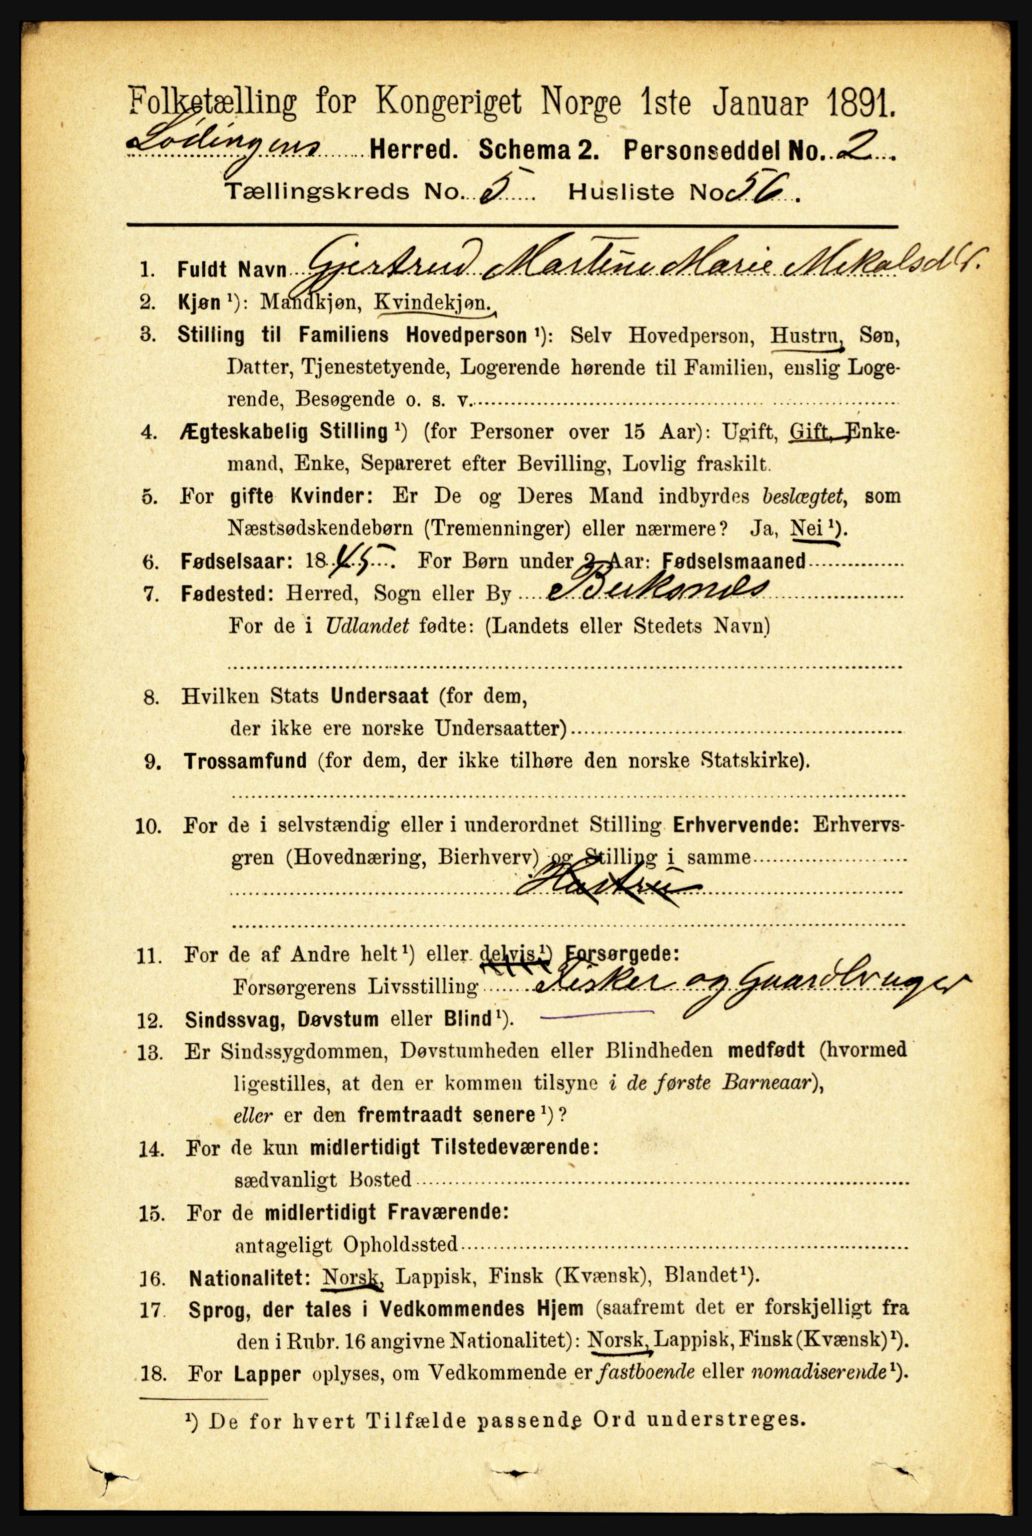 Folketælling for Kongeriget Norge 1ste Januar 1891.
Lødingens Herred. Schema 2. Personseddel No. 2.
Tællingskreds No. 5. Husliste No 56.
1. Fuldt Navn Gjertrud Martine Marie Mekalsdtr.
2. Kjøn ¹): Mandkjøn, Kvindekjøn.
3. Stilling til Familiens Hovedperson ¹): Selv Hovedperson, Hustru, Søn,
Datter, Tjenestetyende, Logerende hørende til Familien, enslig Loge-
rende, Besøgende o. s. v.
4. Ægteskabelig Stilling ¹) (for Personer over 15 Aar): Ugift, Gift, Enke-
mand, Enke, Separeret efter Bevilling, Lovlig fraskilt.
5. For gifte Kvinder: Er De og Deres Mand indbyrdes beslægtet, som
Næstsødskendebørn (Tremenninger) eller nærmere? Ja, Nei ¹).
6. Fødselsaar: 1845. For Børn under 2 Aar: Fødselsmaaned
7. Fødested: Herred, Sogn eller By Buksnæs
For de i Udlandet fødte: (Landets eller Stedets Navn)
8. Hvilken Stats Undersaat (for dem,
der ikke ere norske Undersaatter)
9. Trossamfund (for dem, der ikke tilhøre den norske Statskirke).
10. For de i selvstændig eller i underordnet Stilling Erhvervende: Erhvervs-
gren (Hovednæring, Bierhverv) og Stilling i samme
Hustru
11. For de af Andre helt ¹) eller delvis ¹) Forsørgede:
Forsørgerens Livsstilling Fisker og Gaardbruger
12. Sindssvag, Døvstum eller Blind ¹).
13. Er Sindssygdommen, Døvstumheden eller Blindheden medfødt (hvormed
ligestilles, at den er kommen tilsyne i de første Barneaar),
eller er den fremtraadt senere ¹)?
14. For de kun midlertidigt Tilstedeværende:
sædvanligt Bosted
15. For de midlertidigt Fraværende:
antageligt Opholdssted
16. Nationalitet: Norsk, Lappisk, Finsk (Kvænsk), Blandet ¹).
17. Sprog, der tales i Vedkommendes Hjem (saafremt det er forskjelligt fra
den i Rubr. 16 angivne Nationalitet): Norsk, Lappisk, Finsk (Kvænsk) ¹).
18. For Lapper oplyses, om Vedkommende er fastboende eller nomadiserende ¹).
¹) De for hvert Tilfælde passende Ord understreges.